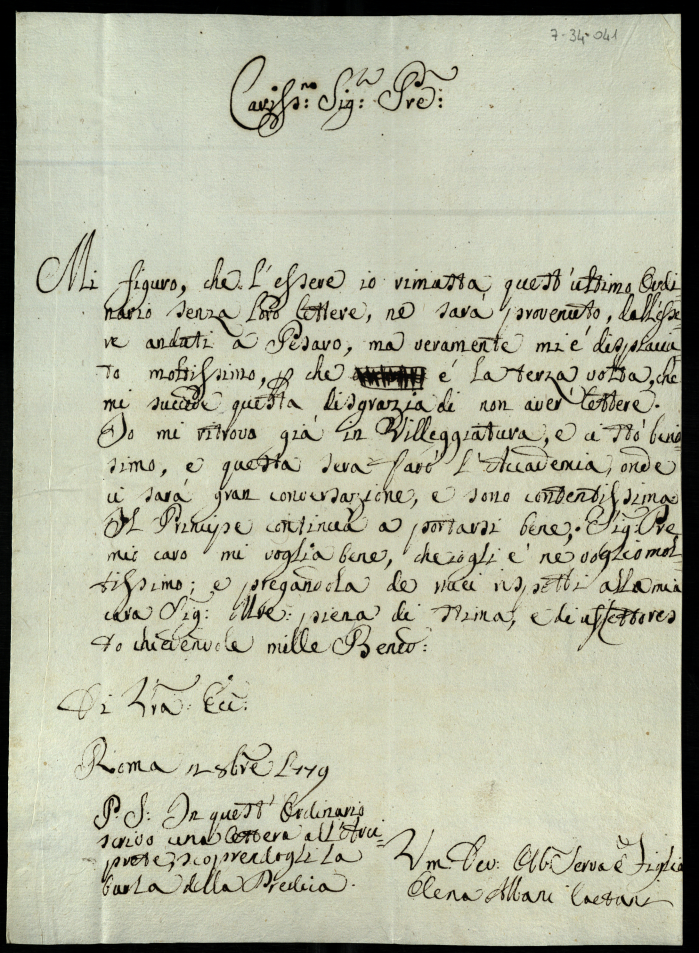 7-34-041
Cariss:mo Sig:r Pre:
Mi figuro, che l'essere io rimasta quest'ultimo Ordi-
nario senza loro lettere, ne sará provenuto, dall'esse-
re andati á Pesaro, ma veramente mi é dispiaciu-
to moltissimo, p che é la terza volta, che
mi succede questa disgrazia di non aver lettere.
Io mi ritrova giá in Villeggiatura, e ci stó beni-
ssimo, e questa sera faró l'Accademia, onde
ci sará gran conversazione, e sono contentissima
Il Principe continua a portarsi bene, Sig: Pre
mio caro mi voglia bene, che io gli é ne voglio mol-
tissimo; e pregandola de miei rispetti alla mia
cara Sig: Mre: piena di stima, e di affetto res
to chiedendole mille Bened:
Di Vra: Ecc:
Roma 12 8bre 1779
P: S: In quest' Ordinario
scrivo una lettera all'Arci-
prete, scoprendogli la
burla della Predica.
Um Dev: Obb: Serva e Figlia
Elena Albani Caetani